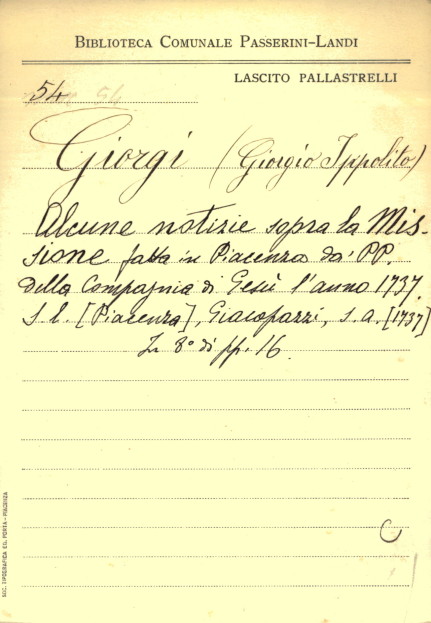 BIBLIOTECA COMUNALE PASSERINI-LANDI
LASCITO PALLASTRELLI
54
Giorgi (Giorgio Ippolito)
Alcune notizie sopra la Mis-
sione fatta in Piacenza da' PP.
della Compagnia di Gesù l'anno 1737.
S. l. [Piacenza], Giacopazzi, s. a. [1737]
In 8° di pp. 16.
C
SOC. TIPOGRAFICA ED. PORTA - PIACENZA